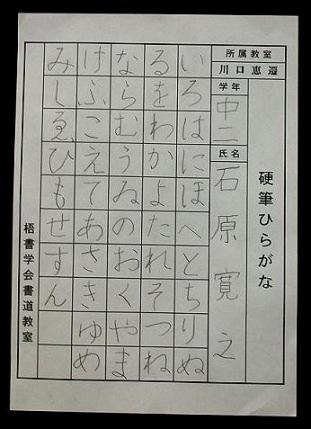 硬筆ひらがな
所属教室
川口恵遥
学年
中二
氏名
石原寛之
いろはにほへとちりぬ
るをわかよたれそつね
ならむうゐのおくやま
けふこえてあさきゆめ
みしゑひもせすん
梧書学会書道教室